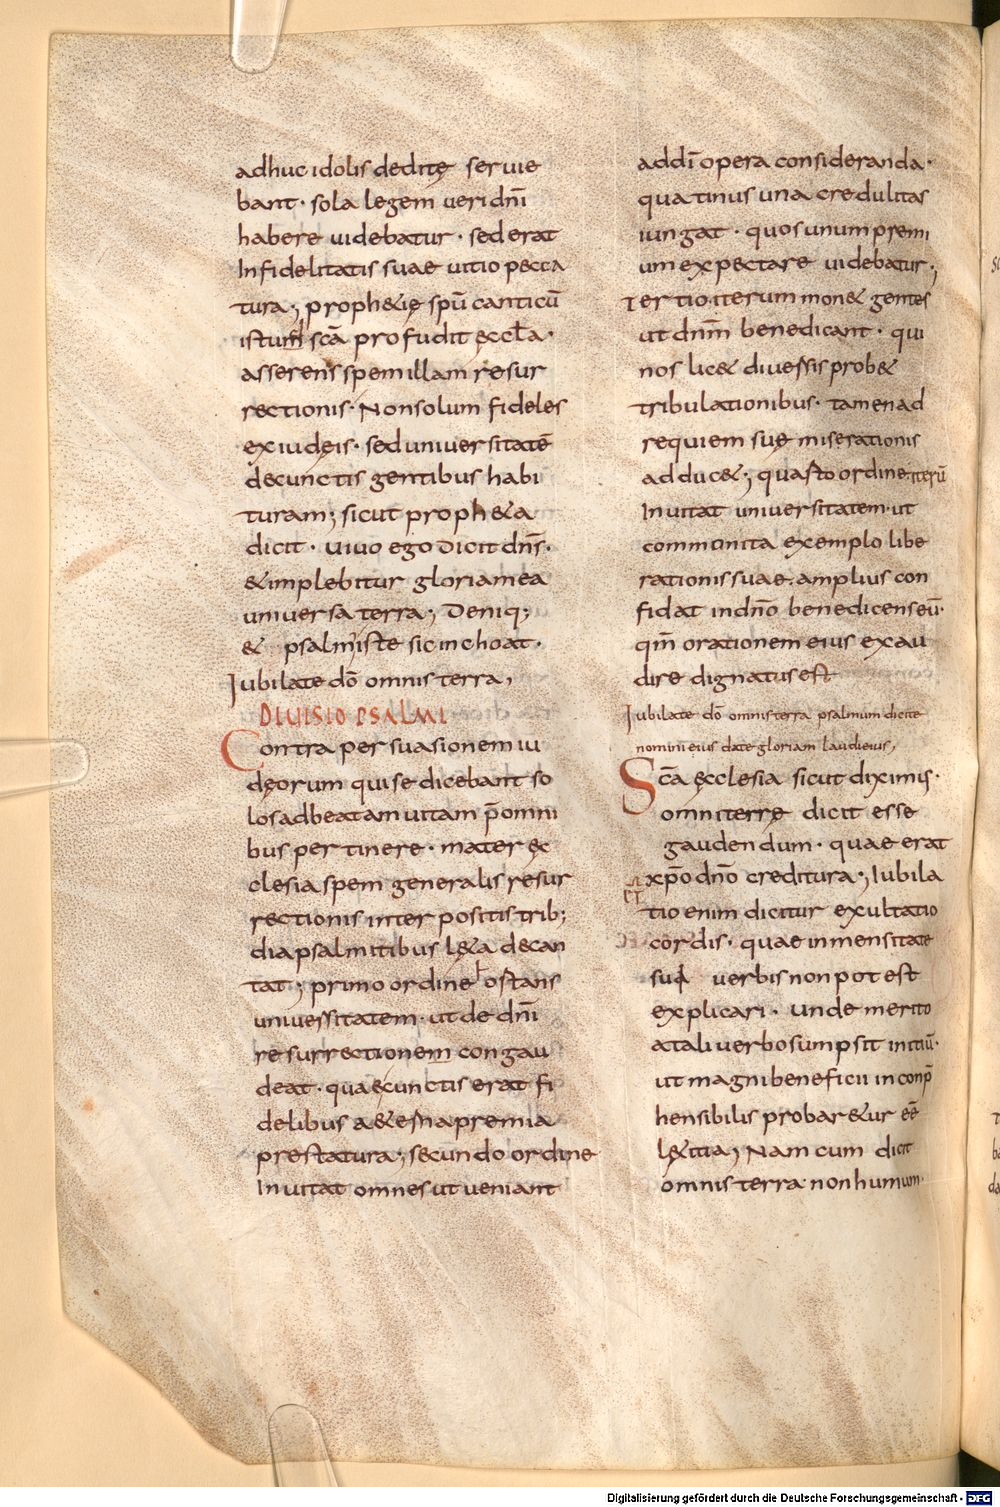 adhuc idolis deditę seruie
bant · sola legem ueri dn̄i
habere uidebatur · sed erat
Infidelitatis suae uitio pecca
tura; proph&ię spū canticū
istum scā profudit ęccła ·
asserens spem illam resur
rectionis · Non solum fideles
ex iudęis · sed uniuersitatē
de cunctis gentibus habi
turam; sicut proph&a
dicit · Uiuo ego dicit dn̄s ·
& implebitur gloria mea
uniuersa terra; Deniq;
& psalmiste sic inchoat ·
Iubilate dō omnis terra,
DIUISIO PSALMI
Contra persuasionem iu
dęorum qui se dicebant so
los ad beatam uitam p̄ omni
bus pertinere · mater ęc
clesia spem generalis resur
rectionis interpositis trib;
diapsalmitibus lę&a decan
tat; primo ordine ostans
uniuessitatem · ut de dn̄i
resurrectionem congau
deat · qua ęcunctis erat fi
delibus a&erna premia
prestatura; secundo ordine
Inuitat omnes ut ueniant
ad dī opera consideranda ·
quatinus una credulitas
iungat · quos unum premi
um expectare uidebatur;
Tertio iterum mon& gentes
ut dnm̄ benedicant · qui
nos lic& diuessis prob&
tribulationibus · tamen ad
requiem suę miserationis
adduc&; quasto ordine iterū
Inuitat uniuersitatem · ut
communita exemplo libe
rationis suae · amplius con
fidat in dn̄o benedicens eū ·
qm̄ orationem eius exau
dire dignatus est
Iubilate dō omnis terra psalmum dicite
nomini eius date gloriam laudi eius,
Scā ęcclesia sicut diximis ·
omni terrę dicit esse
gaudendum · quae erat
xp̄o dn̄o creditura; Iubila
tio enim dicitur exultatio
cordis · quae inmensitate
sua uerbis non potest
explicari · Unde merito
a tali uerbo sumpsit initiū ·
ut magni beneficii inconp̄
hensibilis probar&ur eē
lę&itia; Nam cum dicit
omnis terra · non humum ·
Digitalisierung gefördert durch die Deutsche Forschungsgemeinschaft - DFG